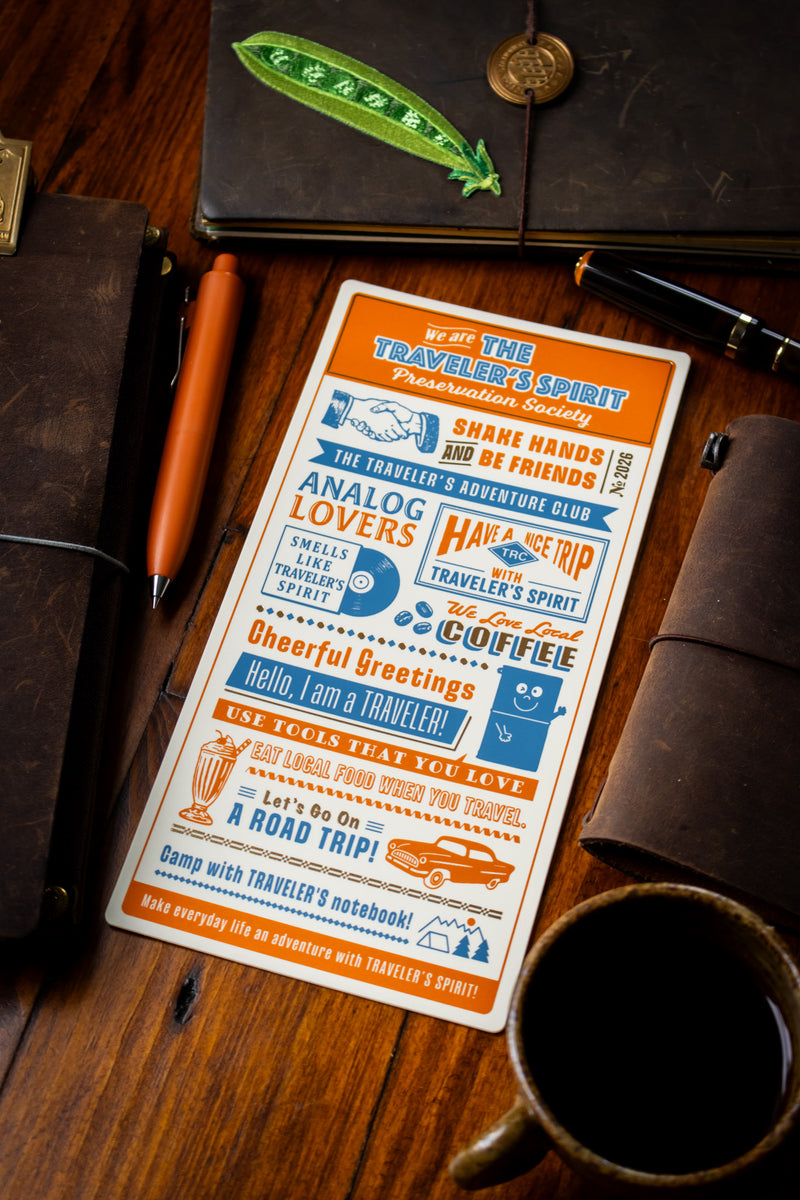 We are THE
TRAVELER'S SPIRIT
Preservation Society
SHAKE HANDS
AND BE FRIENDS
No 2026
THE TRAVELER'S ADVENTURE CLUB
ANALOG
LOVERS
SMELLS
LIKE
TRAVELER'S
SPIRIT
HAVE A NICE TRIP
TRC
WITH
TRAVELER'S SPIRIT
We Love Local
COFFEE
Cheerful Greetings
Hello, I am a TRAVELER!
USE TOOLS THAT YOU LOVE
EAT LOCAL FOOD WHEN YOU TRAVEL.
Let's Go On
A ROAD TRIP!
Camp with TRAVELER'S notebook!
Make everyday life an adventure with TRAVELER'S SPIRIT!